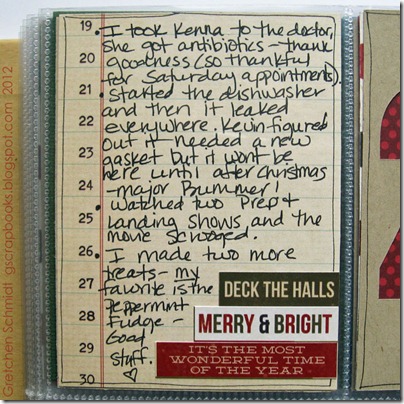 19
20
21
22
23
24
25
26
27
28
29
30
I took Kenna to the doctor,
she got antibiotics - thank
goodness (so thankful
for Saturday appointments).
Started the dishwasher
and then it leaked
everywhere. Kevin figured
out it needed a new
gasket but it wont be
here until after Christmas
- major Bummer!
Watched two Prep &
Landing shows and the
movie Scrooged.
I made two more
treats - my
favorite is the
Peppermint
Fudge -
Good
stuff.
DECK THE HALLS
MERRY & BRIGHT
IT'S THE MOST
WONDERFUL TIME
OF THE YEAR
Gretchen Schmidt gscrapbooks.blogspot.com 2012